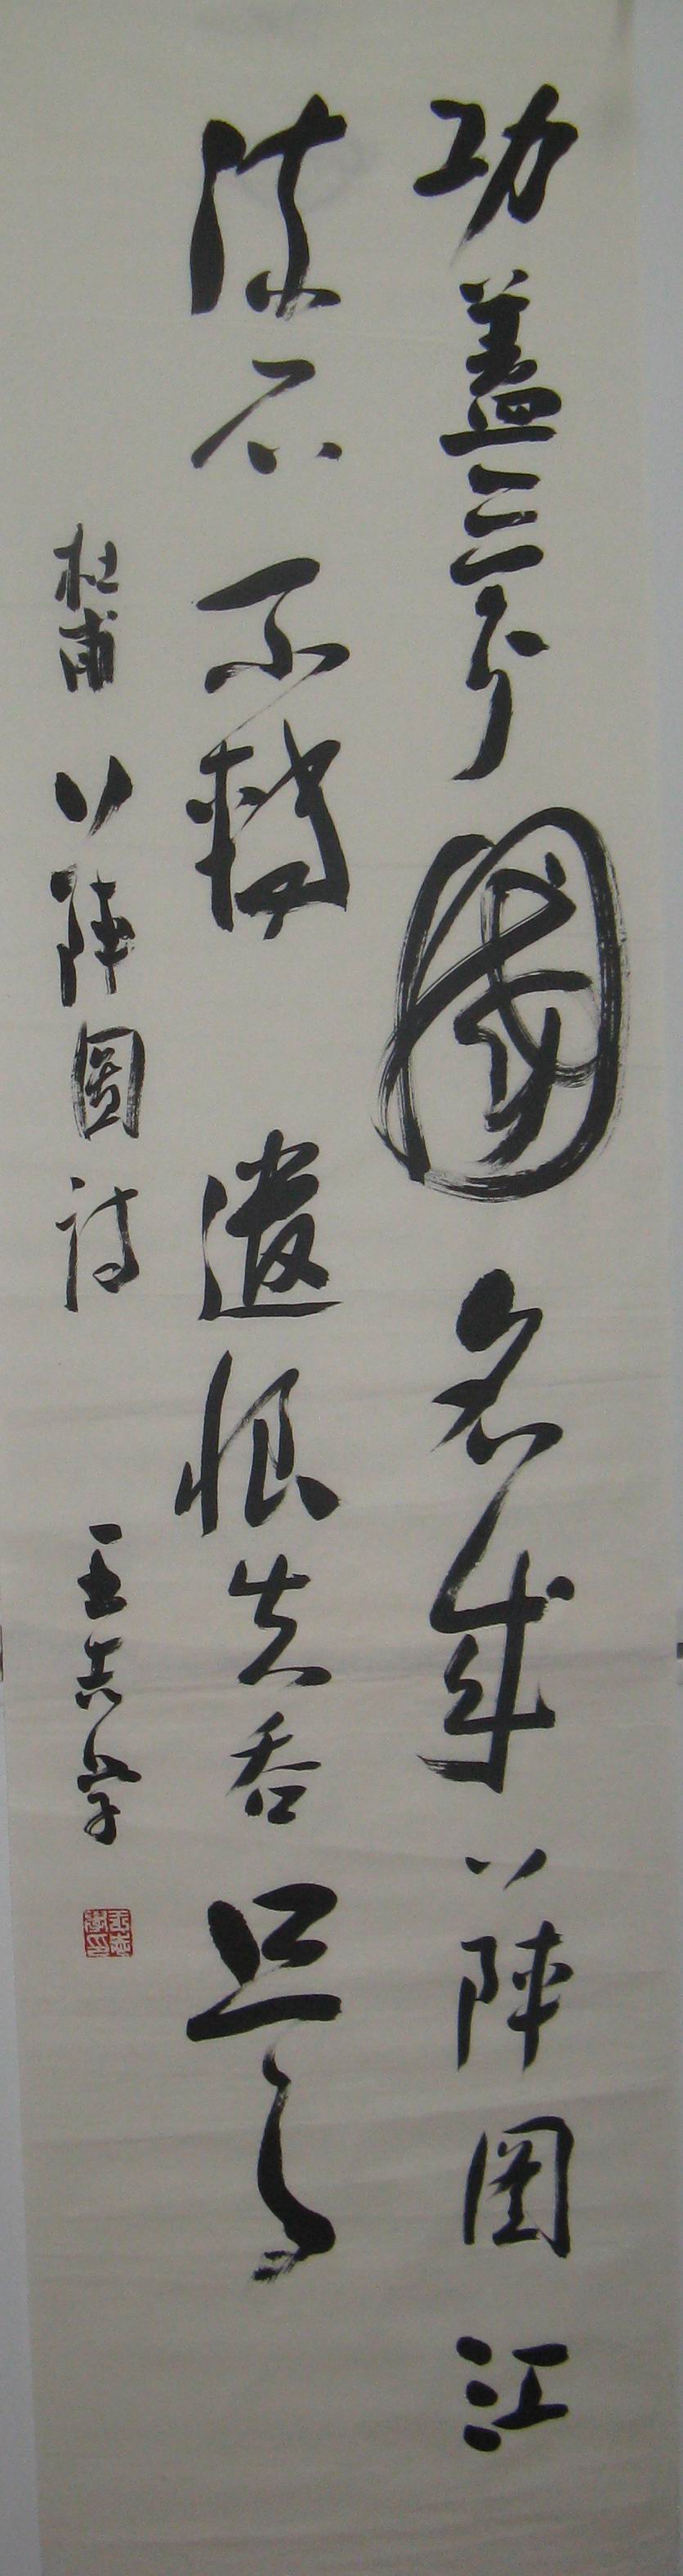 功盖三分國名成八陣圖江
流石不轉遺恨失吞吴
杜甫八陣圖詩 王志学